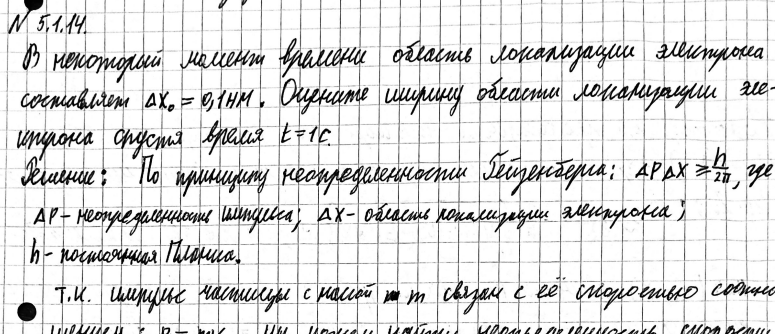 N 5.1.14.
В некоторый момент времени область локализации электрона
составляет ΔX₀ = 0,1нм. Оцените ширину области локализации эле-
ктрона спустя время t=1с.
Решение: По принципу неопределенности Гейзенберга: ΔPΔX ≥ h/2π, где
ΔP – неопределенность импульса; ΔX – область локализации электрона;
h – постоянная Планка.
Т.к. импульс частицы с массой m связан с её скоростью соотно
шением: неопределенность скорости